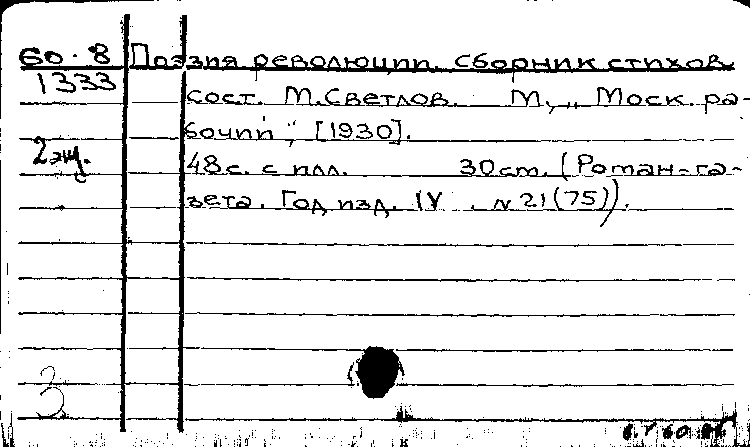 60.8 Поэзия революции. Сборник стихов.
1333 сост. М.Светлов. М., „Моск. ра-
бочий“, [1930].
2 экз. 48с. с илл. 30см. (Роман-га-
зета. Год изд. IV. №21(75)).
3